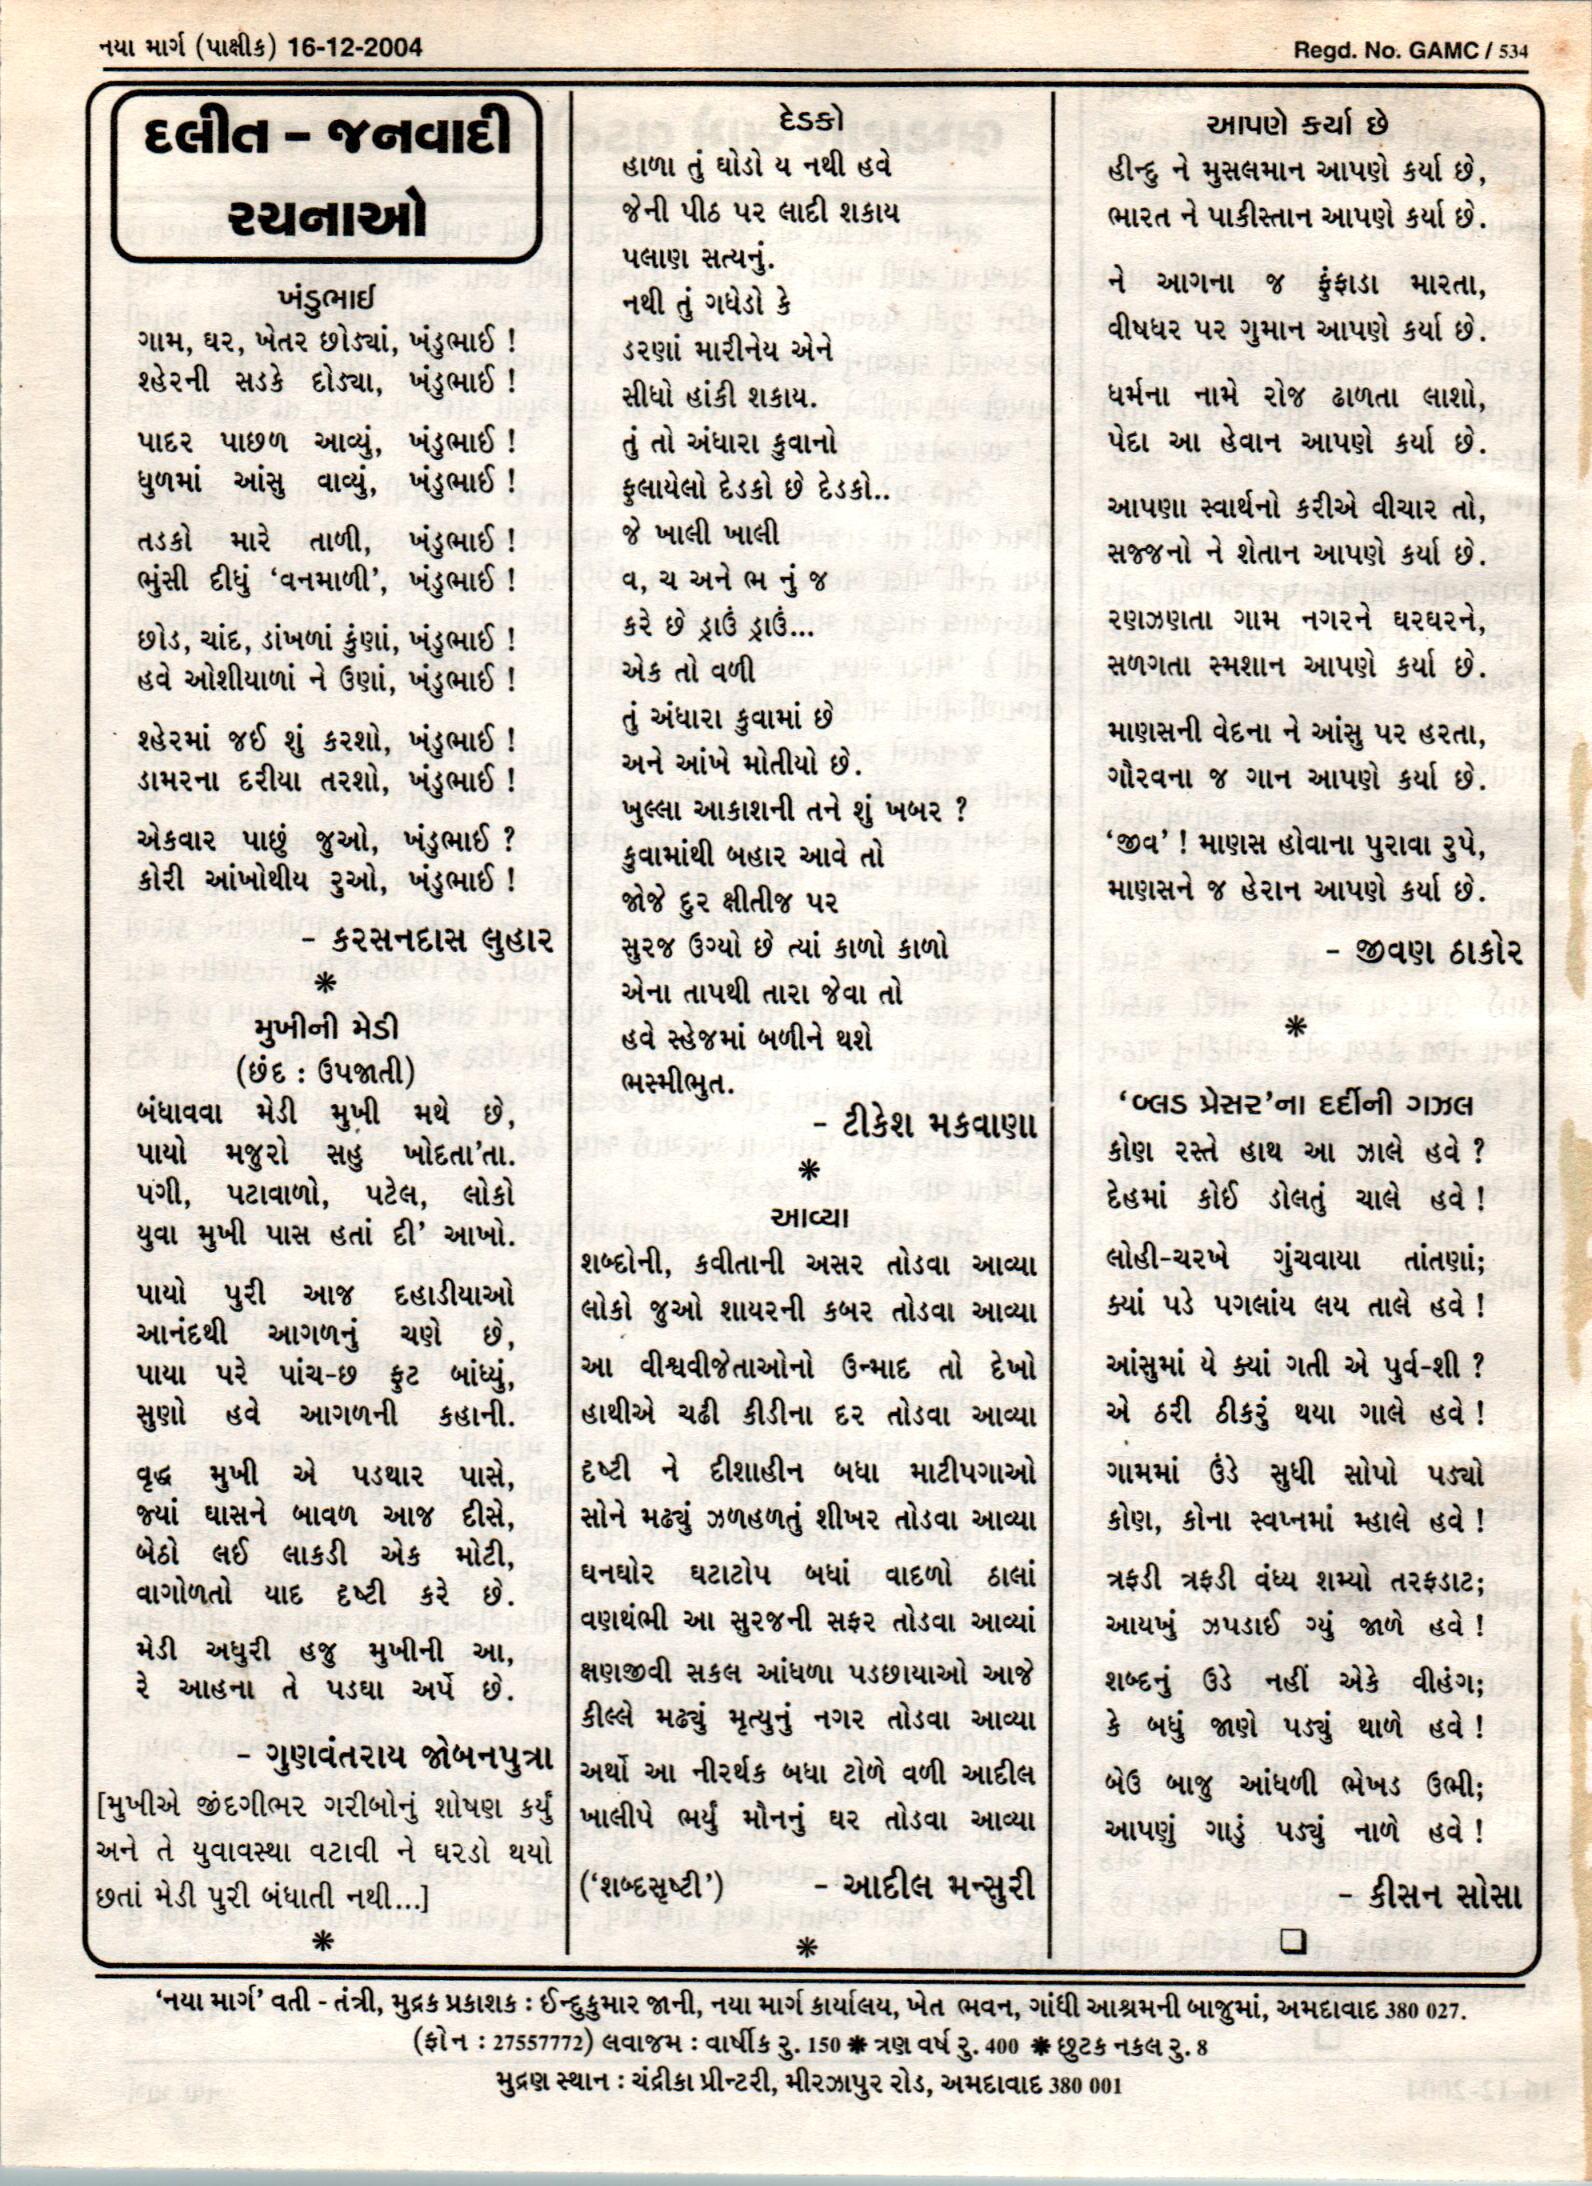 નયા માર્ગ (પાક્ષીક) 16-12-2004
Regd. No. GAMC / 534
દલીત – જનવાદી
રચનાઓ
ખંડુભાઈ
ગામ, ઘર, ખેતર છોડ્યાં, ખંડુભાઈ !
શ્હેરની સડકે દોડ્યા, ખંડુભાઈ !
પાદર પાછળ આવ્યું, ખંડુભાઈ !
ધુળમાં આંસુ વાવ્યું, ખંડુભાઈ !
તડકો મારે તાળી, ખંડુભાઈ !
ભુંસી દીધું ‘વનમાળી’, ખંડુભાઈ !
છોડ, ચાંદ, ડાંખળાં કુંણાં, ખંડુભાઈ !
હવે ઓશીયાળાં ને ઉણાં, ખંડુભાઈ !
શ્હેરમાં જઈ શું કરશો, ખંડુભાઈ !
ડામરના દરીયા તરશો, ખંડુભાઈ !
એકવાર પાછું જુઓ, ખંડુભાઈ ?
કોરી આંખોથીય રુઓ, ખંડુભાઈ !
– કરસનદાસ લુહાર
❋
મુખીની મેડી
(છંદ : ઉપજાતી)
બંધાવવા મેડી મુખી મથે છે,
પાયો મજુરો સહુ ખોદતા’તા.
પગી, પટાવાળો, પટેલ, લોકો
યુવા મુખી પાસ હતાં દી’ આખો.
પાયો પુરી આજ દહાડીયાઓ
આનંદથી આગળનું ચણે છે,
પાયા પરે પાંચ-છ ફુટ બાંધ્યું,
સુણો હવે આગળની કહાની.
વૃદ્ધ મુખી એ પડથાર પાસે,
જ્યાં ઘાસને બાવળ આજ દીસે,
બેઠો લઈ લાકડી એક મોટી,
વાગોળતો યાદ દૃષ્ટી કરે છે.
મેડી અધુરી હજુ મુખીની આ,
રે આહના તે પડઘા અર્પે છે.
– ગુણવંતરાય જોબનપુત્રા
[મુખીએ જીંદગીભર ગરીબોનું શોષણ કર્યું
અને તે યુવાવસ્થા વટાવી ને ઘરડો થયો
છતાં મેડી પુરી બંધાતી નથી...]
❋
દેડકો
હાળા તું ઘોડો ય નથી હવે
જેની પીઠ પર લાદી શકાય
પલાણ સત્યનું.
નથી તું ગધેડો કે
ડરણાં મારીનેય એને
સીધો હાંકી શકાય.
તું તો અંધારા કુવાનો
ફુલાયેલો દેડકો છે દેડકો..
જે ખાલી ખાલી
વ, ચ અને ભ નું જ
કરે છે ડ્રાઉં ડ્રાઉં...
એક તો વળી
તું અંધારા કુવામાં છે
અને આંખે મોતીયો છે.
ખુલ્લા આકાશની તને શું ખબર ?
કુવામાંથી બહાર આવે તો
જોજે દુર ક્ષીતીજ પર
સુરજ ઉગ્યો છે ત્યાં કાળો કાળો
એના તાપથી તારા જેવા તો
હવે સ્હેજમાં બળીને થશે
ભસ્મીભુત.
– ટીકેશ મકવાણા
❋
આવ્યા
શબ્દોની, કવીતાની અસર તોડવા આવ્યા
લોકો જુઓ શાયરની કબર તોડવા આવ્યા
આ વીશ્વવીજેતાઓનો ઉન્માદ તો દેખો
હાથીએ ચઢી કીડીના દર તોડવા આવ્યા
દૃષ્ટી ને દીશાહીન બધા માટીપગાઓ
સોને મઢ્યું ઝળહળતું શીખર તોડવા આવ્યા
ઘનઘોર ઘટાટોપ બધાં વાદળો ઠાલાં
વણથંભી આ સુરજની સફર તોડવા આવ્યાં
ક્ષણજીવી સકલ આંધળા પડછાયાઓ આજે
કીલ્લે મઢ્યું મૃત્યુનું નગર તોડવા આવ્યા
અર્થો આ નીરર્થક બધા ટોળે વળી આદીલ
ખાલીપે ભર્યું મૌનનું ઘર તોડવા આવ્યા
(‘શબ્દસૃષ્ટી’) – આદીલ મન્સુરી
❋
આપણે કર્યા છે
હીન્દુ ને મુસલમાન આપણે કર્યા છે,
ભારત ને પાકીસ્તાન આપણે કર્યા છે.
ને આગના જ ફુંફાડા મારતા,
વીષધર પર ગુમાન આપણે કર્યા છે.
ધર્મના નામે રોજ ઢાળતા લાશો,
પેદા આ હેવાન આપણે કર્યા છે.
આપણા સ્વાર્થનો કરીએ વીચાર તો,
સજ્જનો ને શેતાન આપણે કર્યા છે.
રણઝણતા ગામ નગરને ઘરઘરને,
સળગતા સ્મશાન આપણે કર્યા છે.
માણસની વેદના ને આંસુ પર હરતા,
ગૌરવના જ ગાન આપણે કર્યા છે.
‘જીવ’ ! માણસ હોવાના પુરાવા રુપે,
માણસને જ હેરાન આપણે કર્યા છે.
– જીવણ ઠાકોર
❋
‘બ્લડ પ્રેસર’ના દર્દીની ગઝલ
કોણ રસ્તે હાથ આ ઝાલે હવે ?
દેહમાં કોઈ ડોલતું ચાલે હવે !
લોહી-ચરખે ગુંચવાયા તાંતણાં;
ક્યાં પડે પગલાંય લય તાલે હવે !
આંસુમાં યે ક્યાં ગતી એ પુર્વ-શી ?
એ ઠરી ઠીકરું થયા ગાલે હવે !
ગામમાં ઉંડે સુધી સોપો પડ્યો
કોણ, કોના સ્વપ્નમાં મ્હાલે હવે !
ત્રફડી ત્રફડી વંધ્ય શમ્યો તરફડાટ;
આયખું ઝપડાઈ ગ્યું જાળે હવે !
શબ્દનું ઉડે નહીં એકે વીહંગ;
કે બધું જાણે પડ્યું થાળે હવે !
બેઉ બાજુ આંધળી ભેખડ ઉભી;
આપણું ગાડું પડ્યું નાળે હવે !
– કીસન સોસા
❏
‘નયા માર્ગ’ વતી - તંત્રી, મુદ્રક પ્રકાશક : ઈન્દુકુમાર જાની, નયા માર્ગ કાર્યાલય, ખેત ભવન, ગાંધી આશ્રમની બાજુમાં, અમદાવાદ 380 027.
(ફોન : 27557772) લવાજમ : વાર્ષીક રુ. 150 ❋ ત્રણ વર્ષ રુ. 400 ❋ છુટક નકલ રુ. 8
મુદ્રણ સ્થાન : ચંદ્રીકા પ્રીન્ટરી, મીરઝાપુર રોડ, અમદાવાદ 380 001